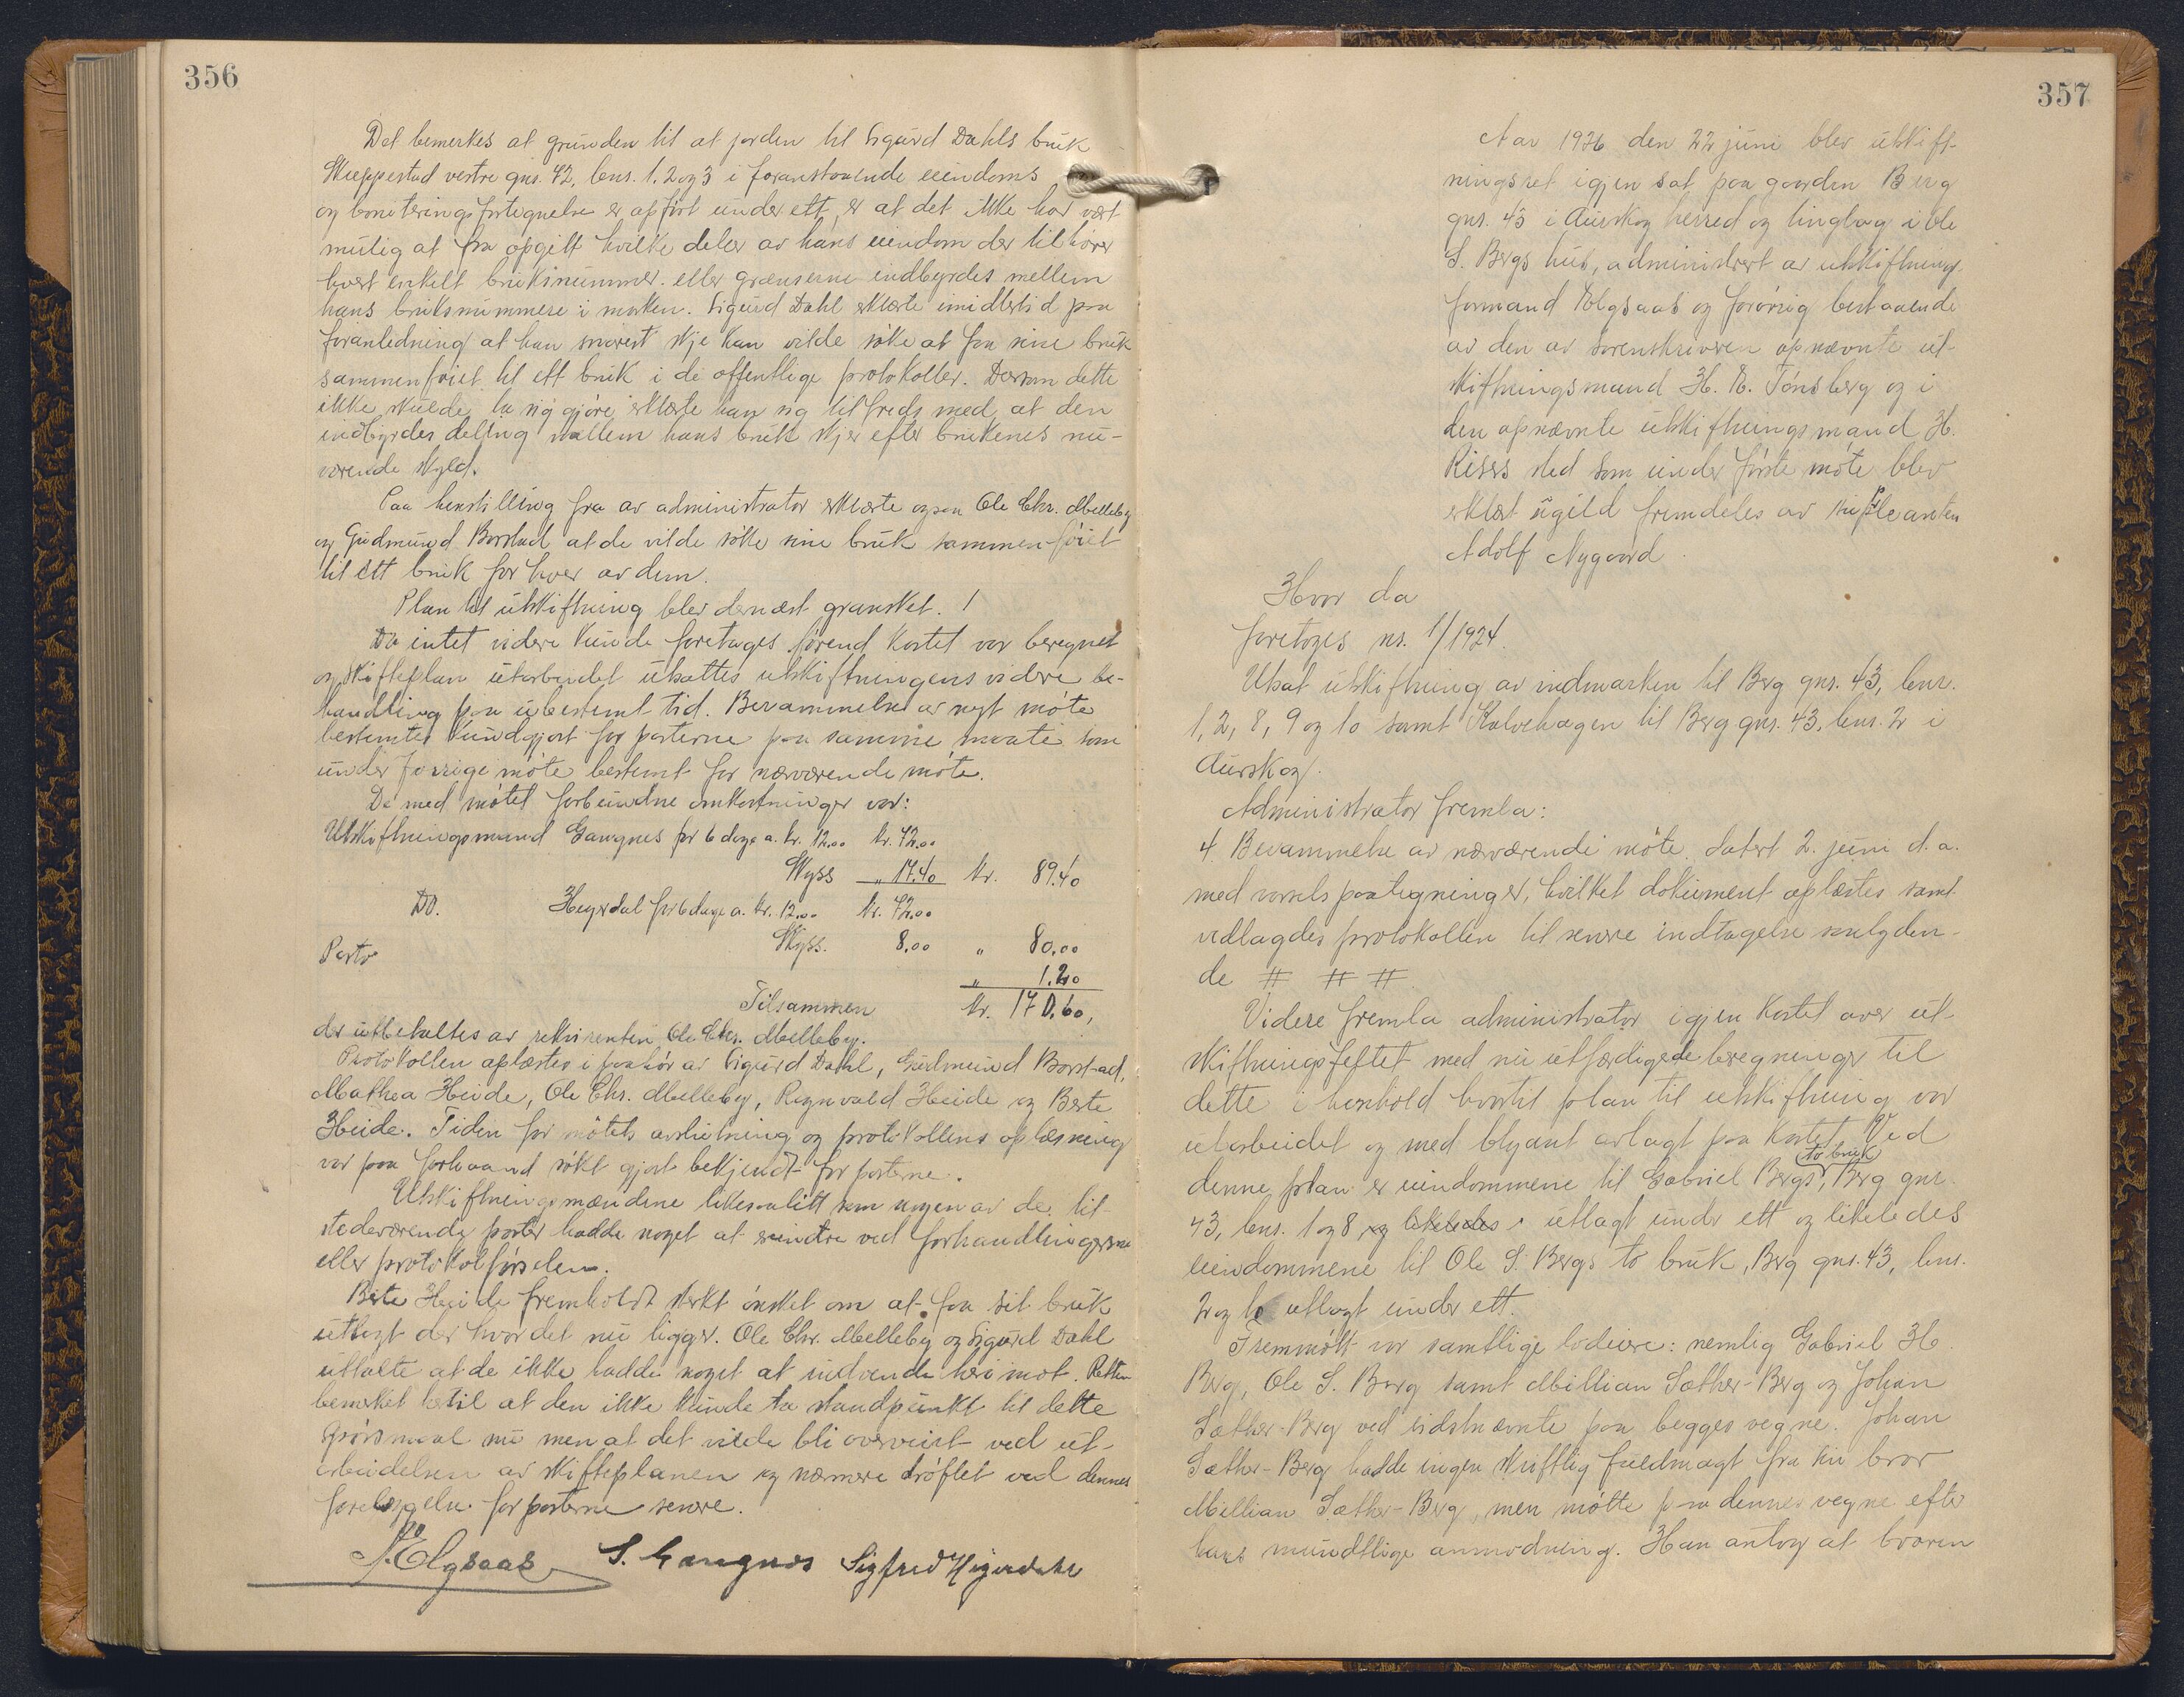 356
Det bemerkes at grunden til at jorden til Sigurd Dahls bruk
Skuppestad vestre gnr. 42, bnr. 1, 2 og 3 i foranstaaende eiendoms
og boniteringsfortegnelse er opført under ett, er at det ikke har vært
mulig at faa opgitt hvilke deler av hans eiendom der tilhører
hvert enkelt bruksnummer eller grænserne indbyrdes mellem
hans bruksnummere i marken. Sigurd Dahl erklærte imidlertid paa
foranledning at han snarest skje kan vilde søke at faa sine bruk
sammenføiet til ett bruk i de offentlige protokoller. Dersom dette
ikke skulde la sig gjøre erklærte han sig tilfreds med at den
indbyrdes deling mellem hans bruk skjer efter brukenes nu-
værende skyld.
Paa henstilling fra av administrator erklærte ogsaa Ole Chr. Melleby
og Gudmund Borstad at de vilde søke sine bruk sammenføiet
til ett bruk for hver av dem.
Plan til utskiftning blev dernæst gransket. !
Da intet videre kunde foretages førend kartet var beregnet
og skifteplan utarbeidet utsattes utskiftningens videre be-
handling paa ubestemt tid. Berammelse av nyt møte
bestemtes kundgjort for parterne paa samme maate som
under forrige møte bestemt for nærværende møte.
De med møtet forbundne omkostninger var:
Utskiftningsmand Gangnes for 6 dage a. kr. 12.00 kr. 72.00
Skyss " 17.40 kr. 89.40
Do. Heyerdal for 6 dage a. kr. 12.00 kr. 72.00
Skyss. 8.00 " 80.00
Porto " 1.20
Tilsammen kr. 170.60,
der utbetaltes av rekvirenten Ole Chr. Melleby.
Protokollen oplæstes i paahør av Sigurd Dahl, Gudmund Borstad,
Mathea Heide, Ole Chr. Melleby, Ragnvald Heide og Berte
Heide. Tiden for møtets avslutning og protokollens oplæsning
var paa forhaand søkt gjort bekjendt for parterne.
Utskiftningsmændene likesaalitt som nogen av de til-
stedeværende parter hadde noget at erindre ved forhandlingerne
eller protokolførselen.
Berte Heide fremholdt sterkt ønsket om at faa sit bruk
utlagt der hvor det nu ligger. Ole Chr. Melleby og Sigurd Dahl
uttalte at de ikke hadde noget at indvende herimot. Retten
bemerket hertil at den ikke kunde ta standpunkt til dette
spørsmaal nu men at det vilde bli overveiet ved ut-
arbeidelsen av skifteplanen og nærmere drøftet ved dennes
forelæggelse for parterne senere.
P. Elgsaas S. Gangnes Sigfred Heyerdahl
357
Aar 1926 den 22 juni blev utskift-
ningsret igjen sat paa gaarden Berg
gnr. 43 i Aurskog herred og tinglag i Ole
S. Bergs hus, administrert av utskiftnings-
formand Elgsaas og forøvrig bestaaende
av den av sorenskriveren opnævnte ut-
skiftningsmand H. E. Tønsberg og i
den opnævnte utskiftningsmand H.
Risers sted som under første møte blev
erklært ugild fremdeles av suppleanten
Adolf Nygaard.
Hvor da
foretoges nr. 1/1924.
Utsat utskiftning av indmarken til Berg gnr. 43, bnr.
1, 2, 8, 9 og 10 samt Kalvehagen til Berg gnr. 43, bnr. 2 i
Aurskog.
Administrator fremla:
4. Berammelse av nærværende møte datert 2. juni d. a.
med varselspaategninger, hvilket dokument oplæstes samt
vedlagdes protokollen til senere indtagelse saalyden-
de # # #
Videre fremla administrator igjen kartet over ut-
skiftningsfeltet med nu utfærdigede beregninger til
dette i henhold hvortil plan til utskiftning var
utarbeidet og med blyant avlagt paa kartet. Ved
denne plan er eiendommene til Gabriel Bergs to bruk, Berg gnr.
43, bnr. 1 og 8 og likeledes utlagt under ett og likeledes
eiendommene til Ole S. Bergs to bruk, Berg gnr. 43, bnr.
2 og 10 utlagt under ett.
Fremmøtt var samtlige lodeiere: nemlig Gabriel H.
Berg, Ole S. Berg samt Millian Sæther-Berg og Johan
Sæther-Berg ved sidstnævnte paa begges vegne. Johan
Sæther-Berg hadde ingen skriftlig fuldmagt fra sin bror
Millian Sæther-Berg, men møtte paa dennes vegne efter
hans mundtlige anmodning. Han antog at broren